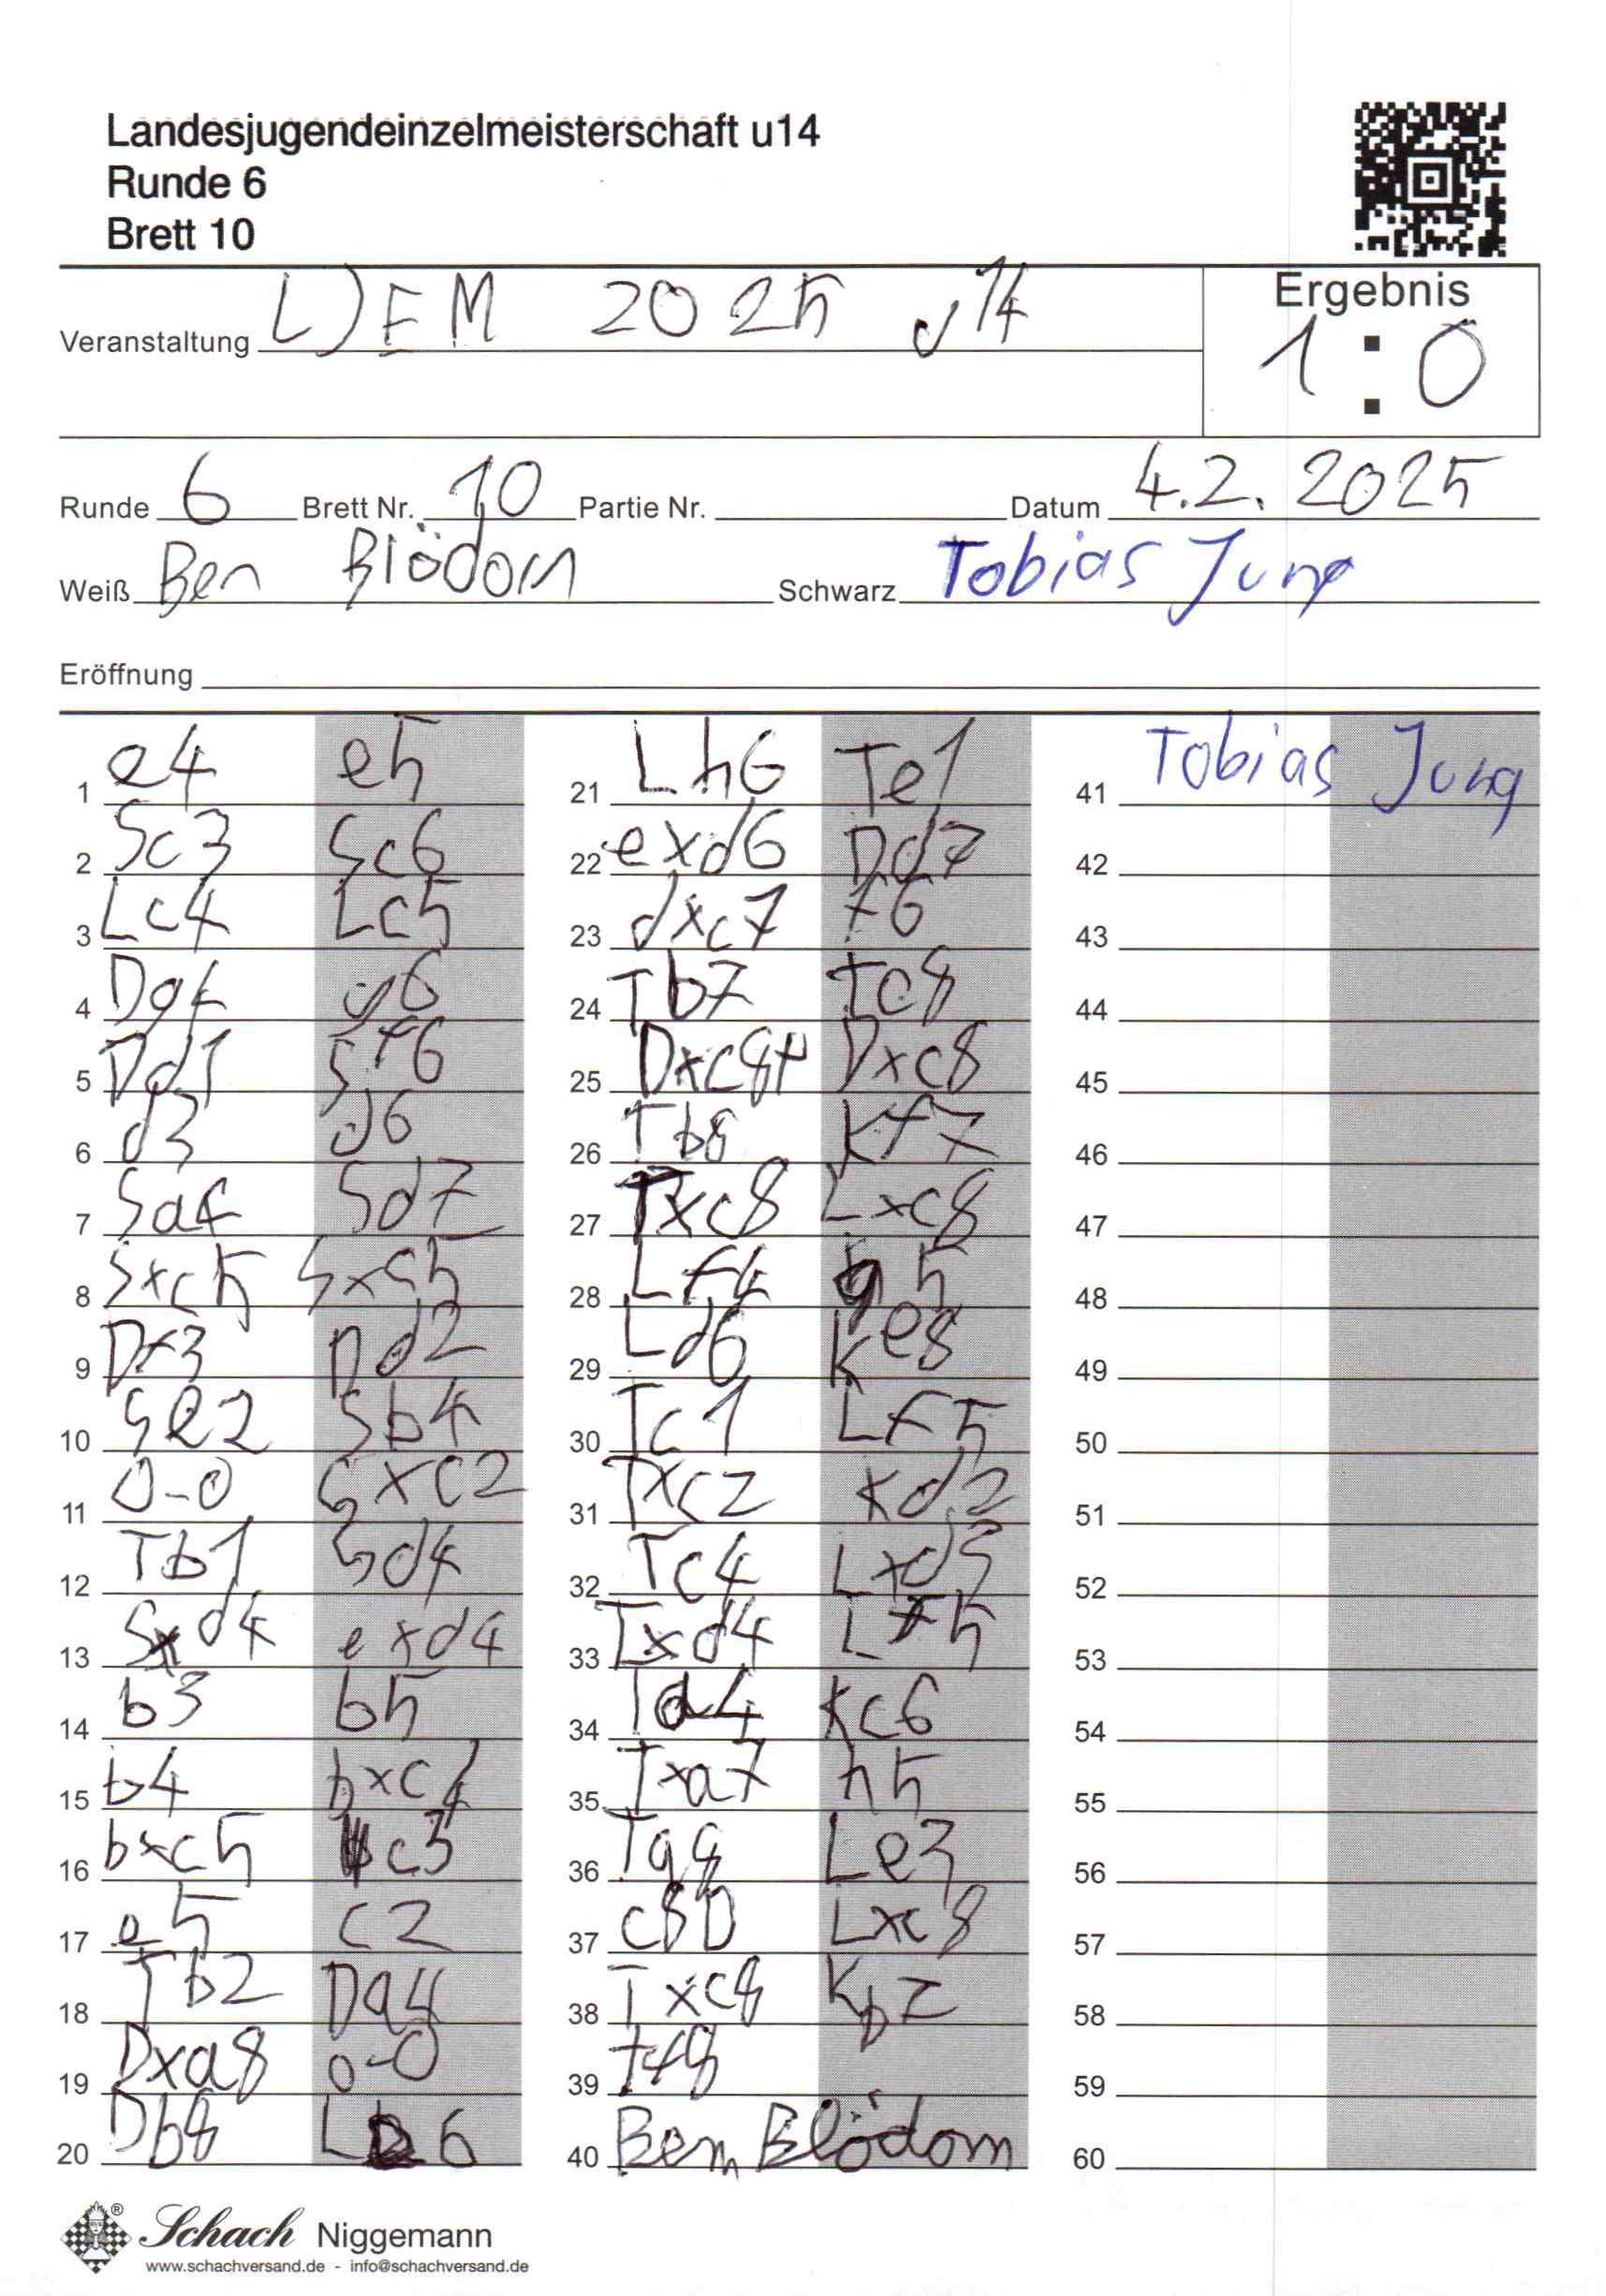 Landesjugendeinzelmeisterschaft u14
Runde 6
Brett 10
Ergebnis
Veranstaltung LJEM 2025 u14
1 : 0
Runde 6 Brett Nr. 10 Partie Nr. Datum 4.2.2025
Weiß Ben Blödorn Schwarz Tobias Jung
Eröffnung
1 e4 e5
2 Sc3 Sc6
3 Lc4 Lc5
4 Dg4 g6
5 Dd1 Sf6
6 d3 d6
7 Sa4 Sd7
8 Sxc5 Sxc5
9 Df3 Dd2
10 Se2 Sb4
11 0-0 Sxc2
12 Tb1 Sd4
13 Sxd4 exd4
14 b3 b5
15 b4 bxc4
16 bxc5 c3
17 e5 c2
18 Tb2 Da4
19 Dxa8 0-0
20 Db8 L 6
21 Lh6 Te1
22 exd6 Dd7
23 dxc7 f6
24 Tb7 Tc8
25 Dxc8+ Dxc8
26 Tb8 Kf7
27 Txc8 Lxc8
28 Lf4 g5
29 Ld6 Ke8
30 Tc1 Lf5
31 Txc2 Kd2
32 Tc4 Lxd3
33 Txd4 Lf5
34 Ta4 Kc6
35 Txa7 h5
36 Ta8 Le3
37 c8D Lxc8
38 Txc8 Kb7
39 Tf8
40 Ben Blödorn
41 Tobias Jung
42
43
44
45
46
47
48
49
50
51
52
53
54
55
56
57
58
59
60
Schach Niggemann
www.schachversand.de - info@schachversand.de